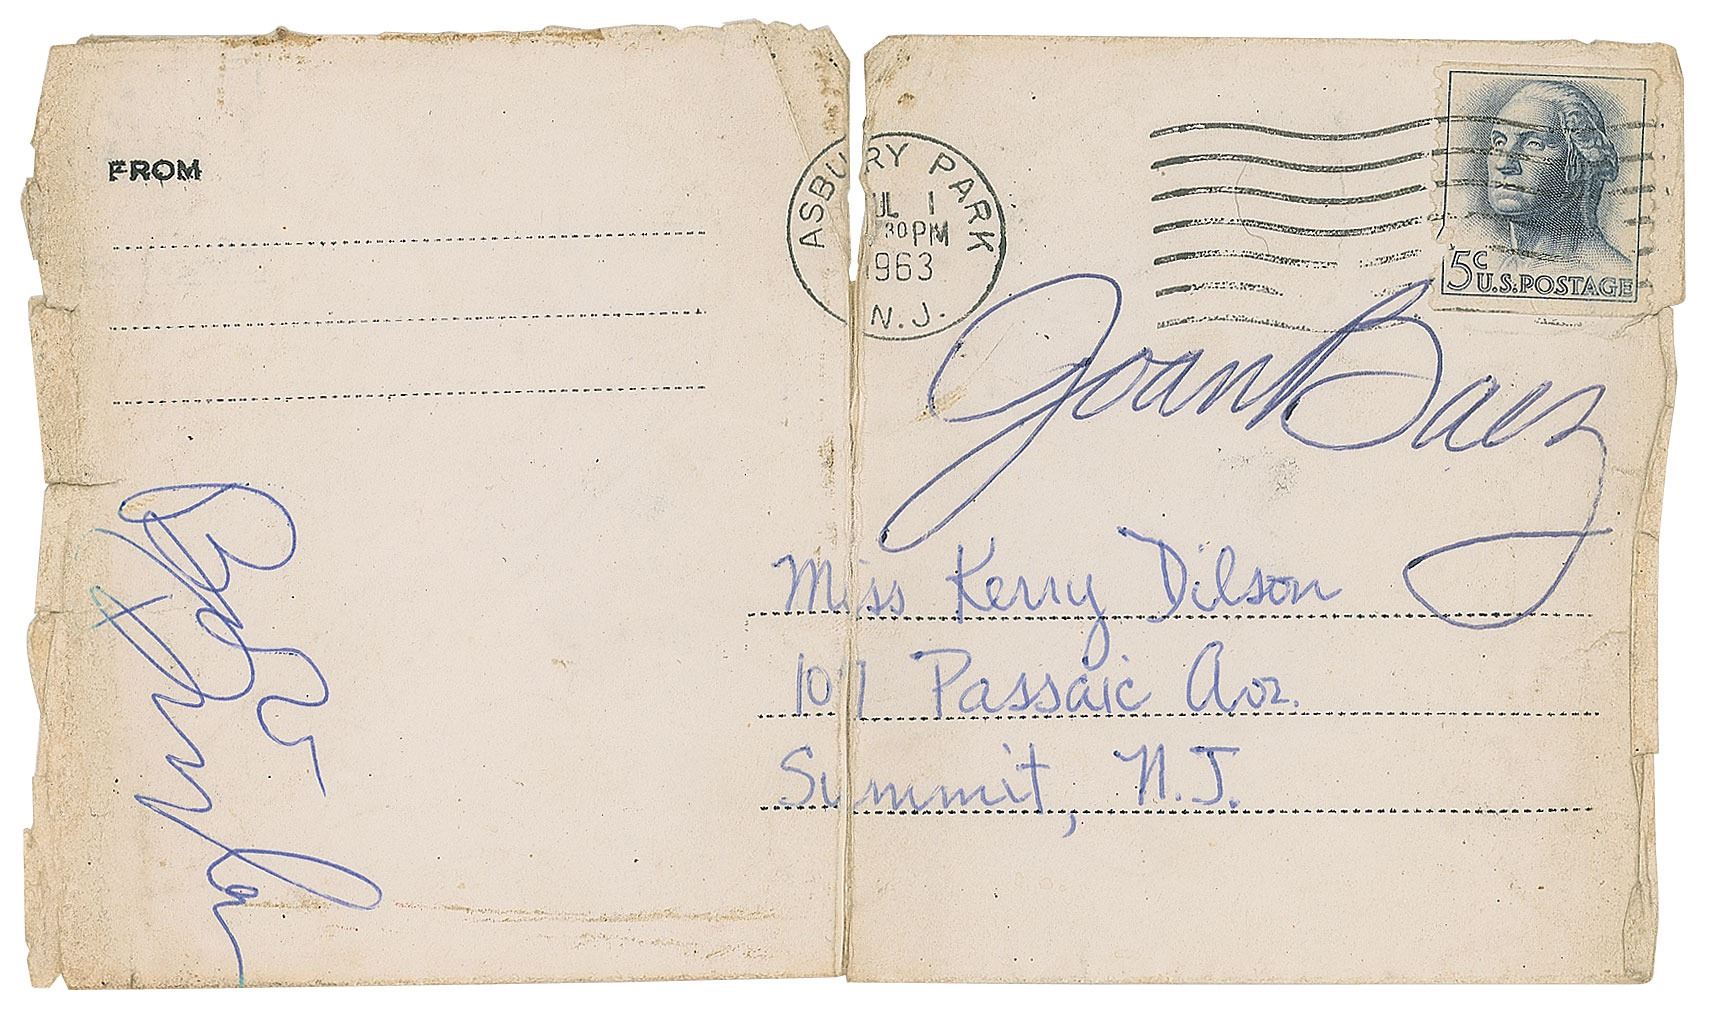 FROM
ASBURY PARK
JUL 1
30 PM
1963
N.J.
5c
U.S. POSTAGE
Joan Baez
Bob Dylan
Miss Kerry Dilson
107 Passaic Ave.
Summit, N.J.